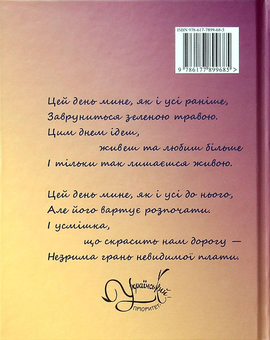 ISBN 978-617-7899-68-5
9 786177 899685
Цей день мине, як і усі раніше,
Заврунитъся зеленою травою.
Цим днем ідеш,
живеш та любиш більше
І тільки так лишаєшся живою.
Цей день мине, як і усі до нього,
Але його вартує розпочати.
І усмішка,
що скрасить нам дорогу —
Незрима грань невидимої плати.
Український
ПРІОРИТЕТ